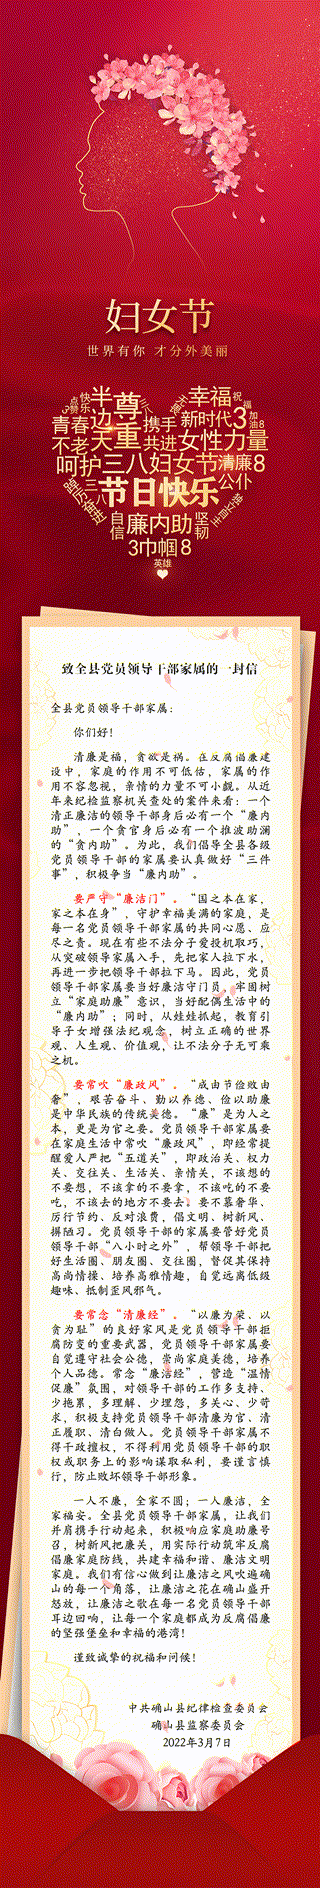 妇女节
世界有你 才分外美丽
半边天
尊重
幸福
祝福
快乐
点赞
三八
携手共进
新时代
加油
青春不老
女性力量
呵护三八妇女节清廉8
节日快乐
公仆
踔厉奋进
独立自主
自信
廉内助
坚韧
3巾帼8
英雄
致全县党员领导干部家属的一封信
全县党员领导干部家属：
你们好！
清廉是福，贪欲是祸。在反腐倡廉建
设中，家庭的作用不可低估，家属的作
用不容忽视，亲情的力量不可小觑。从近
年来纪检监察机关查处的案件来看：一个
清正廉洁的领导干部身后必有一个“廉内
助”，一个贪官身后必有一个推波助澜
的“贪内助”。为此，我们倡导全县各级
党员领导干部的家属要认真做好“三件
事”，积极争当“廉内助”。
要严守“廉洁门”。“国之本在家，
家之本在身”，守护幸福美满的家庭，是
每一名党员领导干部家属的共同心愿、应
尽之责。现在有些不法分子爱投机取巧，
从突破领导家属入手，先把家人拉下水，
再进一步把领导干部拉下马。因此，党员
领导干部家属要当好廉洁守门员，牢固树
立“家庭助廉”意识，当好配偶生活中的
“廉内助”；同时，从娃娃抓起，教育引
导子女增强法纪观念，树立正确的世界
观、人生观、价值观，让不法分子无可乘
之机。
要常吹“廉政风”。“成由节俭败由
奢”，艰苦奋斗、勤以养德、俭以助廉
是中华民族的传统美德。“廉”是为人之
本，更是为官之要。党员领导干部家属要
在家庭生活中常吹“廉政风”，即经常提
醒爱人严把“五道关”，即政治关、权力
关、交往关、生活关、亲情关，不该想的
不要想，不该拿的不要拿，不该吃的不要
吃，不该去的地方不要去。要不慕奢华、
厉行节约、反对浪费，倡文明、树新风、
摒陋习。党员领导干部的家属要管好党员
领导干部“八小时之外”，帮领导干部把
好生活圈、朋友圈、交往圈，督促其保持
高尚情操、培养高雅情趣，自觉远离低级
趣味、抵制歪风邪气。
要常念“清廉经”。“以廉为荣、以
贪为耻”的良好家风是党员领导干部拒
腐防变的重要武器，党员领导干部家属要
自觉遵守社会公德，崇尚家庭美德，培养
个人品德。常念“廉洁经”，营造“温情
促廉”氛围，对领导干部的工作多支持、
少拖累，多理解、少埋怨，多关心、少苛
求，积极支持党员领导干部清廉为官、清
正履职、清白做人。党员领导干部家属不
得干政擅权，不得利用党员领导干部的职
权或职务上的影响谋取私利，要谨言慎
行，防止败坏领导干部形象。
一人不廉，全家不圆；一人廉洁，全
家福安。全县党员领导干部家属，让我们
并肩携手行动起来，积极响应家庭助廉号
召，树新风把廉关，用实际行动筑牢反腐
倡廉家庭防线，共建幸福和谐、廉洁文明
家庭。我们有信心做到让廉洁之风吹遍确
山的每一个角落，让廉洁之花在确山盛开
怒放，让廉洁之歌在每一名党员领导干部
耳边回响，让每一个家庭都成为反腐倡廉
的坚强堡垒和幸福的港湾！
谨致诚挚的祝福和问候！
中共确山县纪律检查委员会
确山县监察委员会
2022年3月7日